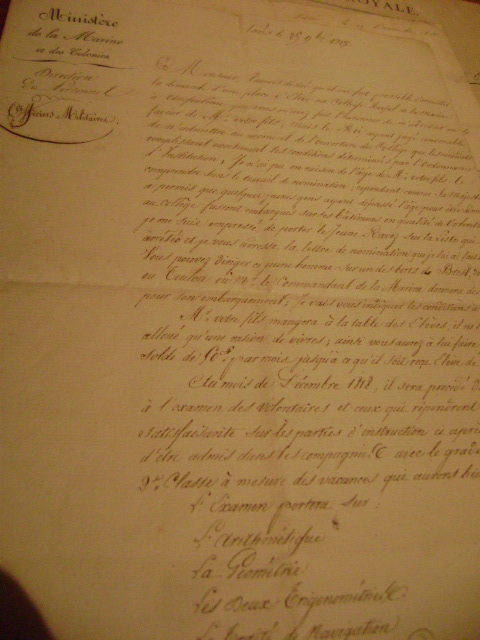 ROYALE.
Ministère
de la Marine
et des Colonies
Direction
Du Personnel
Officiers Militaires.
Paris le 25 1817
Monsieur,
la demande d'une place d'Elève au Collège Royal de la Marine
à que vous m'avez fait l'honneur de m'adresser
faveur de Mr. votre fils; mais le Roi ayant jugé convenable
de n'admettre au moment de l'ouverture du Collège que les
les conditions déterminées par l'ordonnance
d'Institution, Je n'ai pu en raison de l'âge de Mr. votre fils le
comprendre dans le travail de nomination; cependant comme Sa Majesté
a permis que quelques jeunes gens ayant dépassé l'âge pour
au collège fussent embarqués sur ses bâtimens en qualité de Volontaires
je me suis empressé de porter le Jeune Ravez sur la liste qui
arrêtée et je vous adresse la lettre de nomination que j'ai
Vous pouvez diriger ce jeune homme sur un des Ports de Brest,
ou Toulon où Mr. le Commandant de la Marine donnera des
pour son embarquement; Je vais vous indiquer les conditions
Mr. votre fils mangera à la table des Elèves, il ne
alloué qu'une ration de vivres; ainsi vous aurez à lui faire
solde de par mois jusqu'à ce qu'il soit reçu Elève de
Au mois de Décembre 1818, il sera procédé
à l'examen des Volontaires et ceux qui répondront
satisfaisante sur les parties d'instruction ci après
d'être admis dans les compagnies avec le grade
2me Classe à mesure des vacances qui auront lieu
L'Examen portera sur:
L'Arithmétique
La Géométrie
Les Deux Trigonométries
Le Traité de Navigation